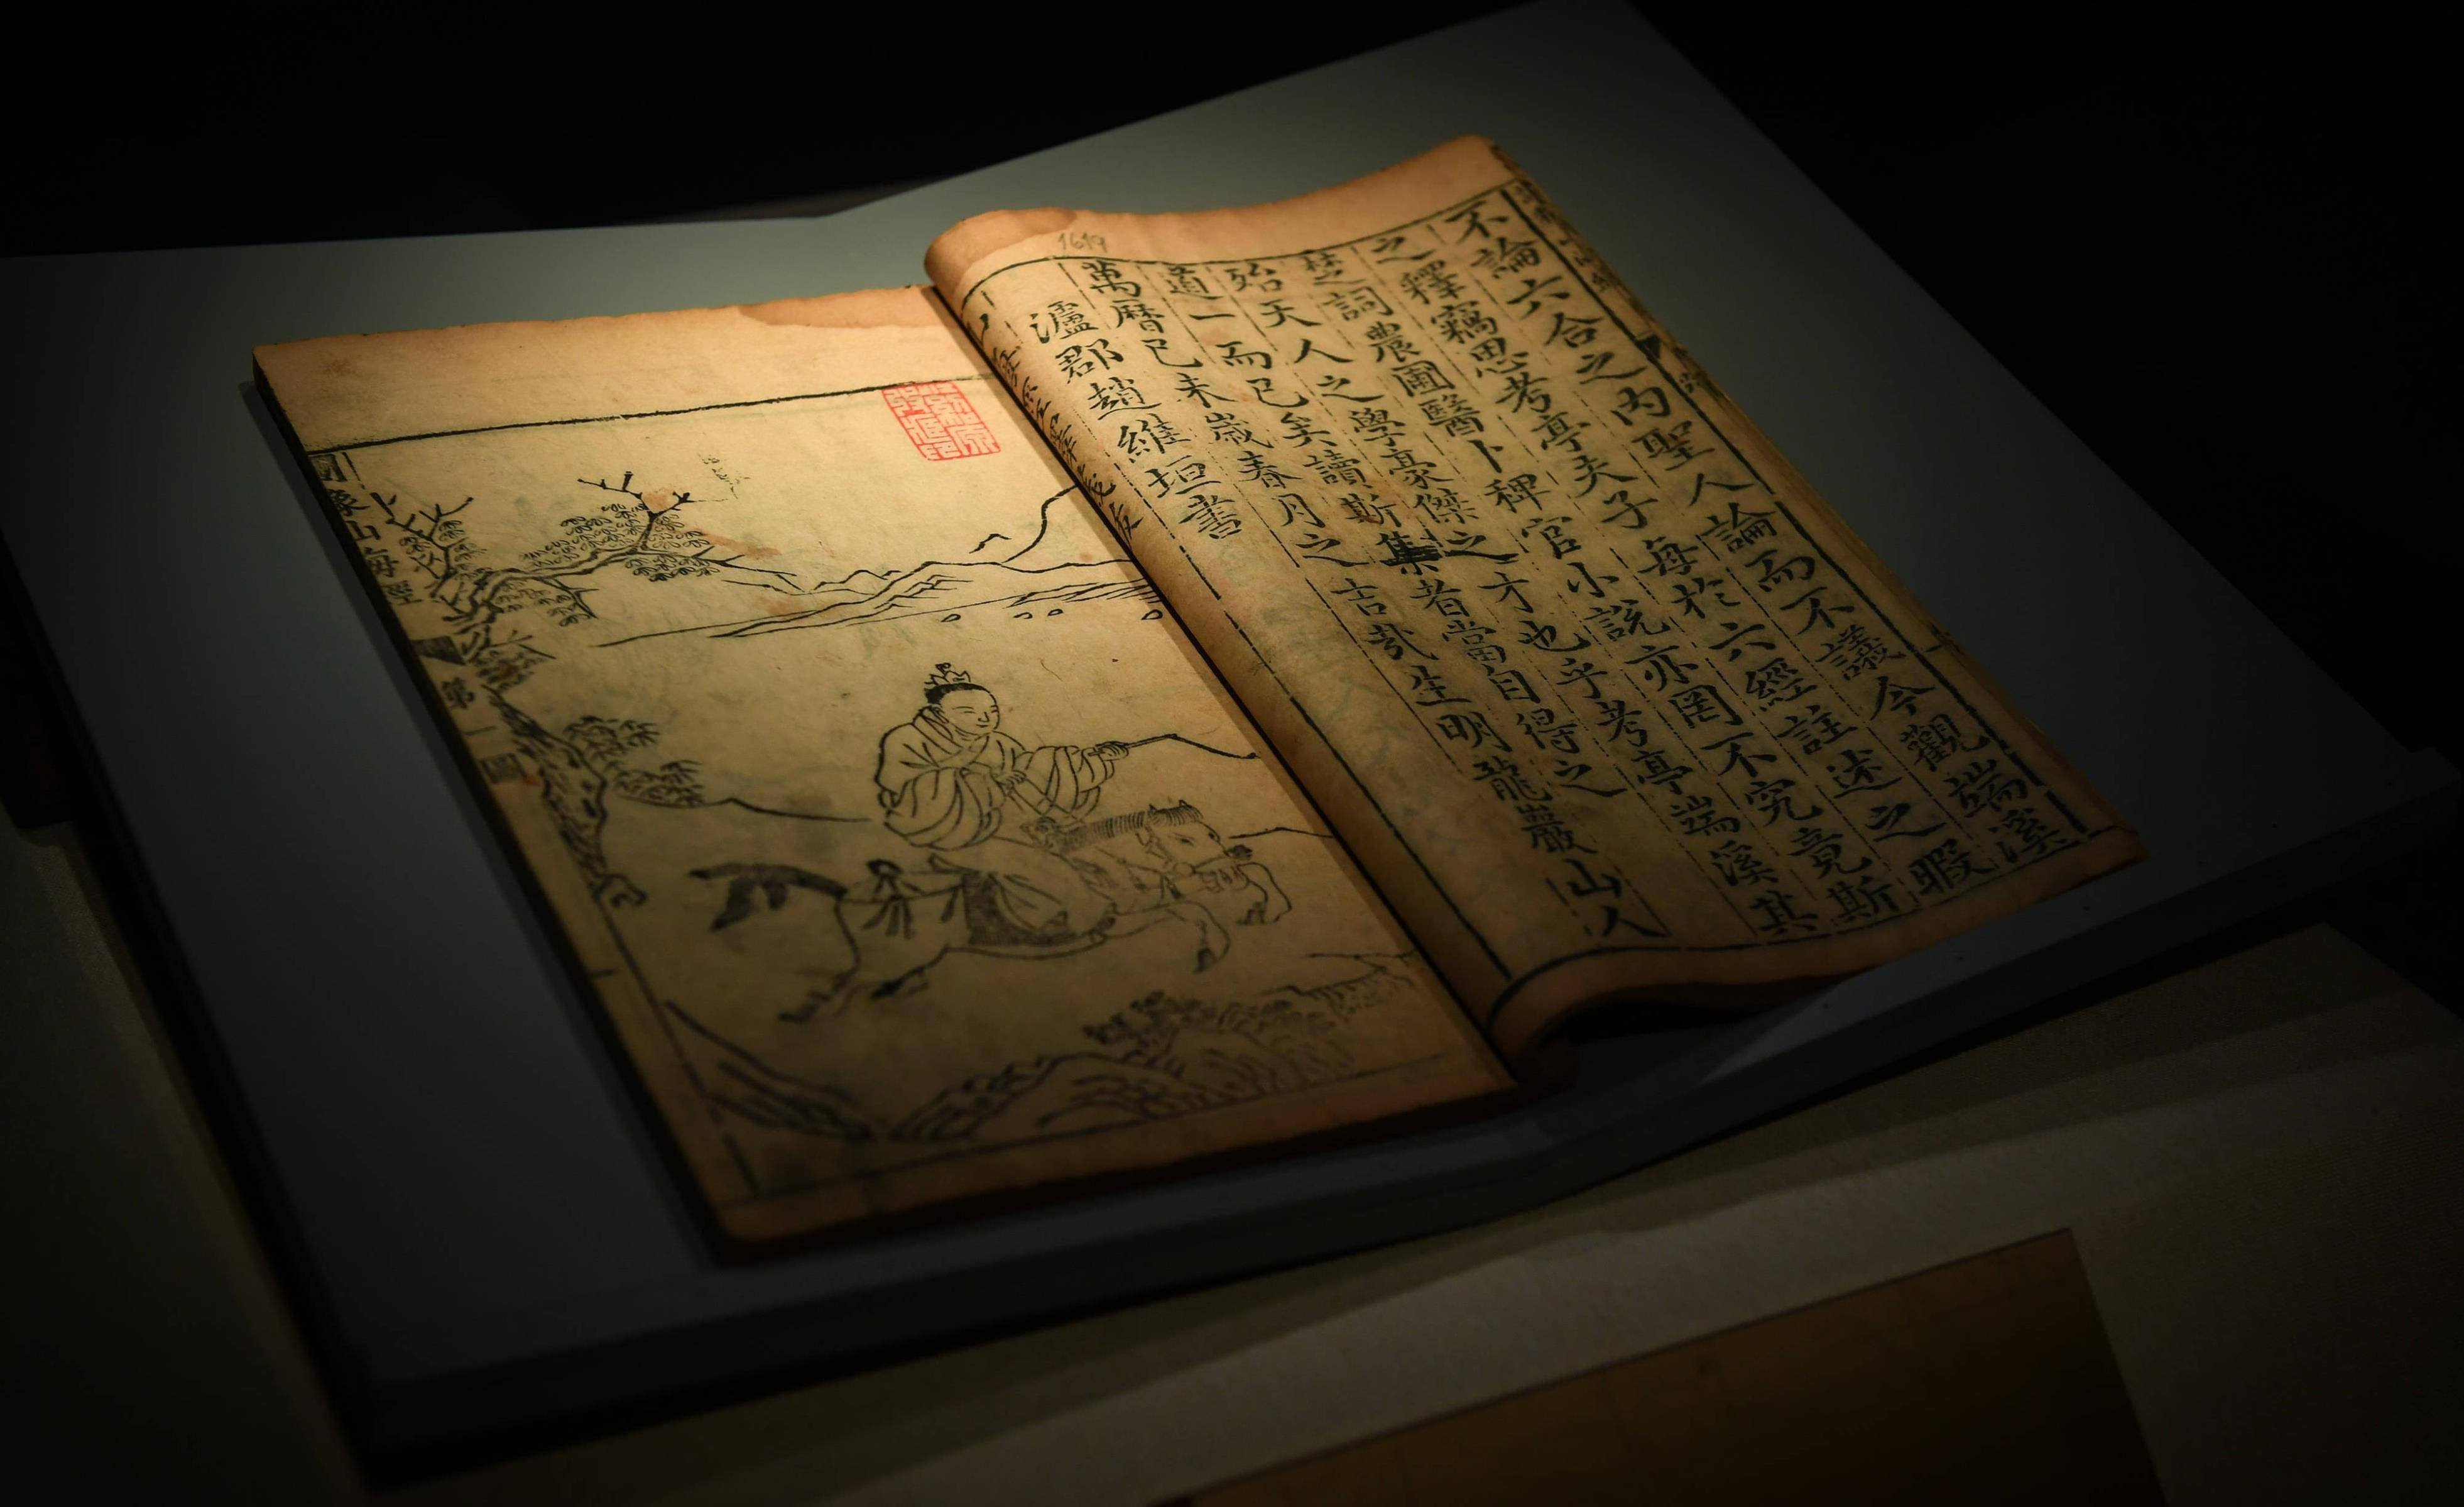 1619
不論六合之內聖人論而不議今觀端溪
之釋竊思考亭夫子每於六經註述之暇
楚詞農圃醫卜稗官小說亦罔不究竟斯
殆天人之學豪傑之才也乎考亭端溪其
道一而已矣讀斯集者當自得之
萬曆已未歲春月之吉哉生明龍巖山人
瀘郡趙維垣書
圖象山海經
第一圖